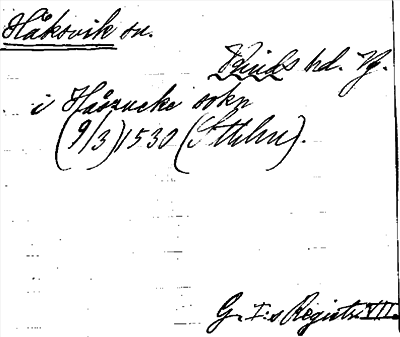 Håksvik sn.
Kinds hd. Vg.
i Håszucke sokn
(9/3) 1530 (Sthlm).
G. I:s Registr. VII.